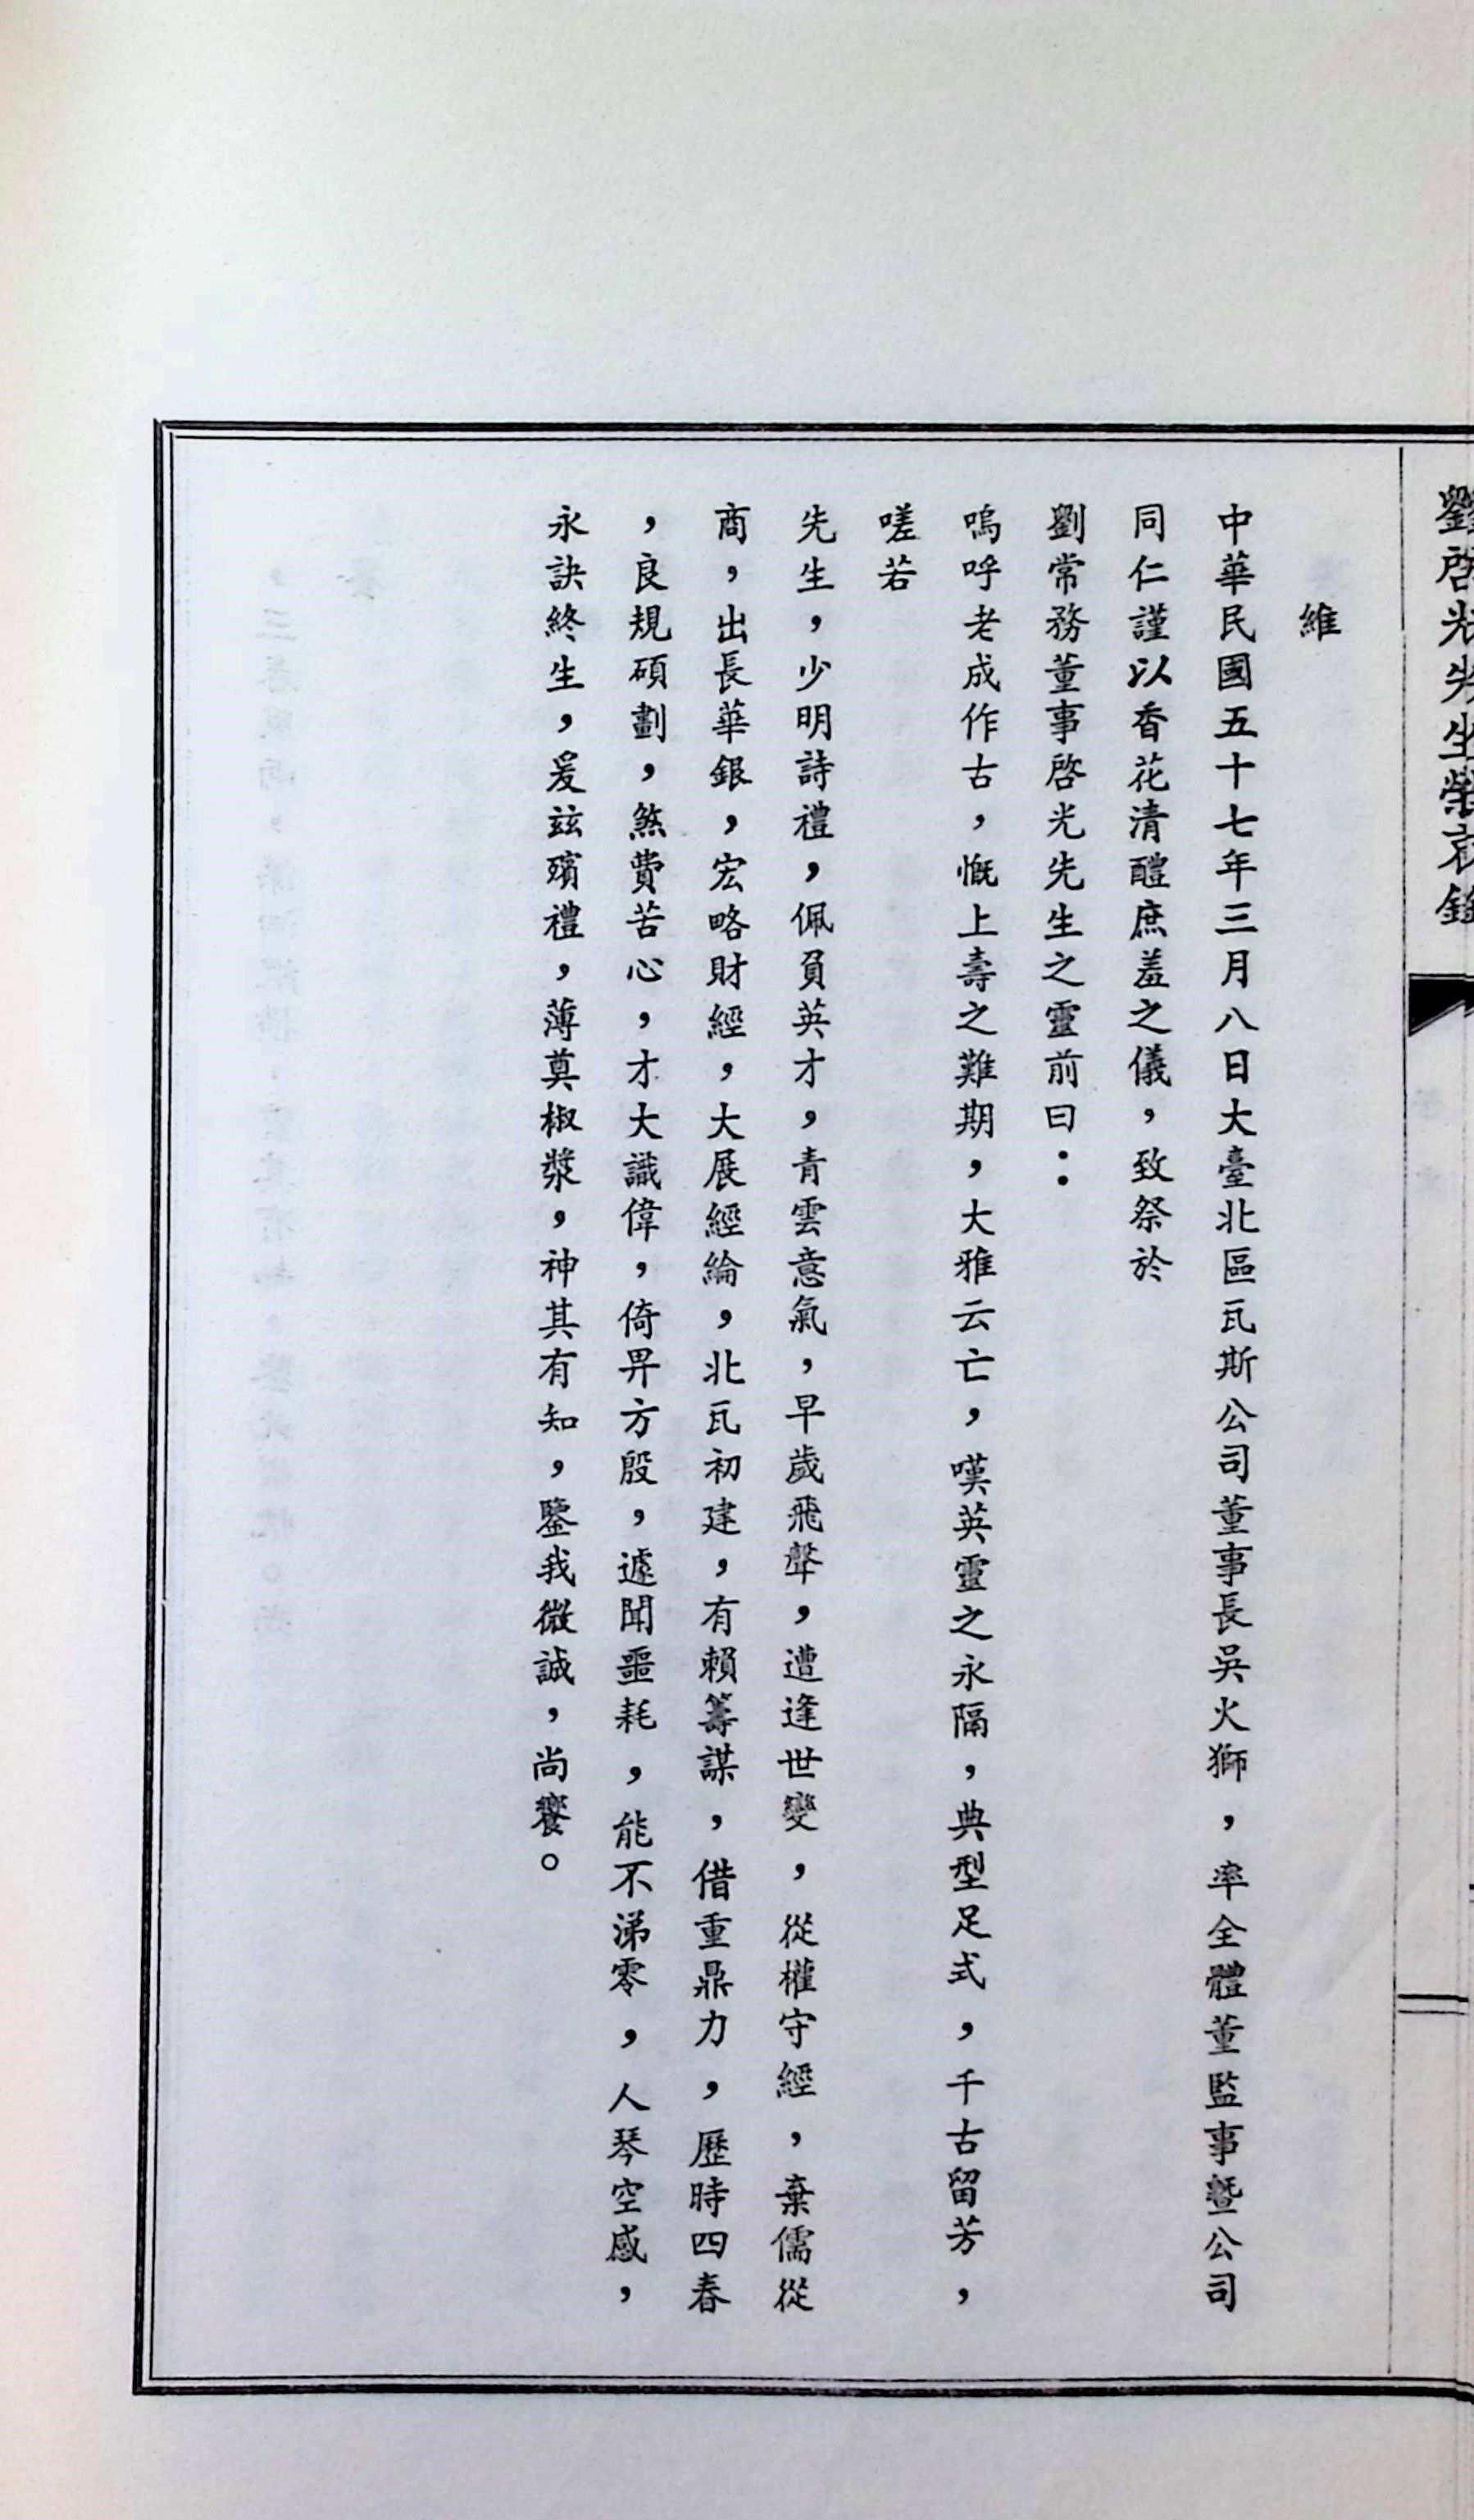 劉啓光先生榮哀錄
維
中華民國五十七年三月八日大臺北區瓦斯公司董事長吳火獅，率全體董監事暨公司
同仁謹以香花清醴庶羞之儀，致祭於
劉常務董事啓光先生之靈前曰：
嗚呼老成作古，慨上壽之難期，大雅云亡，嘆英靈之永隔，典型足式，千古留芳，
嗟若
先生，少明詩禮，佩負英才，青雲意氣，早歲飛聲，遭逢世變，從權守經，棄儒從
商，出長華銀，宏略財經，大展經綸，北瓦初建，有賴籌謀，借重鼎力，歷時四春
，良規碩劃，煞費苦心，才大識偉，倚畀方殷，遽聞噩耗，能不涕零，人琴空感，
永訣終生，爰玆殯禮，薄奠椒漿，神其有知，鑒我微誠，尚饗。